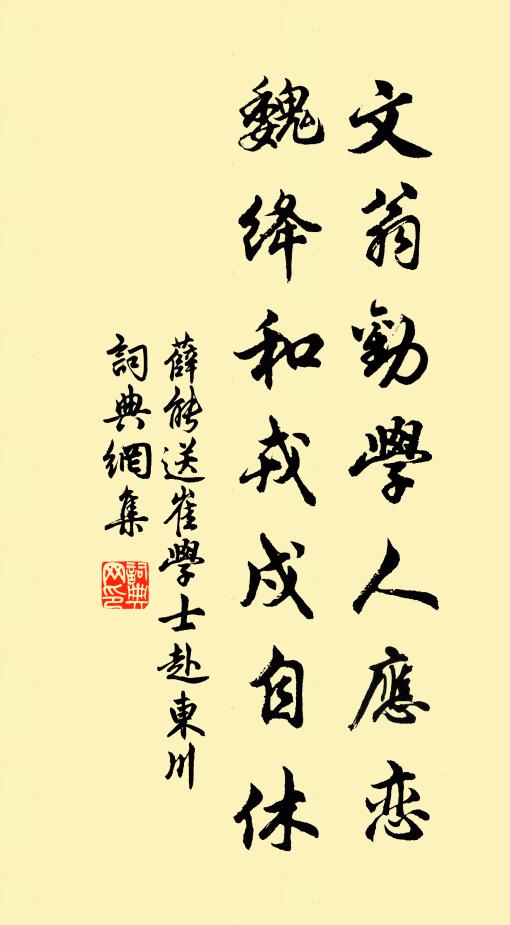 文翁勸學人應恋
魏绛和戎戍自休
薛能送崔學士赴東川
詞典網集
詞典网印